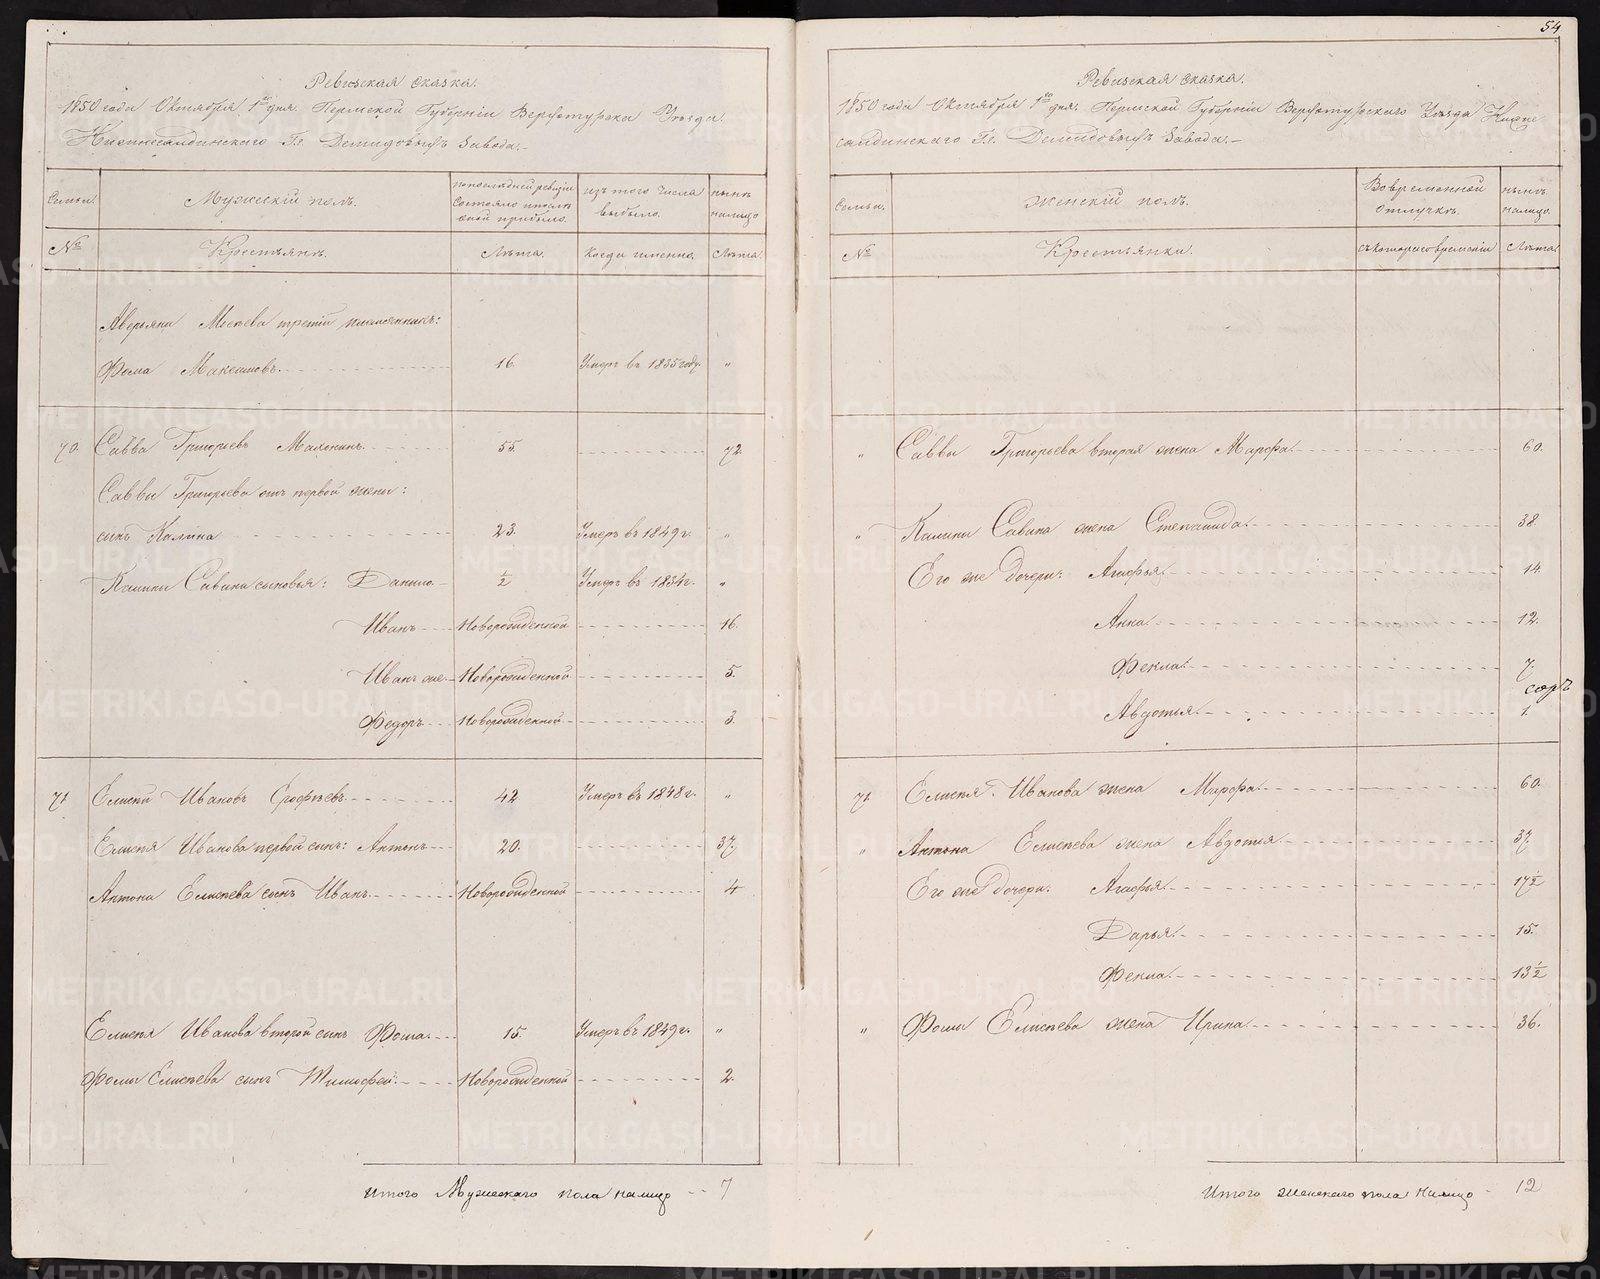 54
Ревизская сказка.
1850 года Октября 1го дня. Пермской Губерніи Верхотурска Уезда.
Нижнесалдинскаго Г.г. Демидовыхъ Завода.
Семьи.
Мужескій полъ.
По последней ревизіи состояло и после оной прибыло.
Изъ того числа выбыло.
Ныне налицо
№
Крестьянъ.
Лета.
Когда именно.
Лета.
Аверьяна Мосеева третій племянникъ:
Фома Максимовъ. 16. Умеръ въ 1835 году. "
70. Савва Григорьевъ Малыгинъ. 55. 72.
Саввы Григорьева отъ первой жены:
сынъ Калина 23. Умеръ въ 1849 г. "
Калины Савина сыновья: Данило 1/2 Умеръ въ 1834 г. "
Иванъ Новорожденной 16.
Иванъ же Новорожденной 5.
Федоръ Новорожденной 3.
71 Елисей Ивановъ Ерофеевъ 42 Умеръ въ 1848 г. "
Елисея Иванова первой сынъ: Антонъ 20. 37.
Антона Елисеева сынъ Иванъ. Новорожденной 4
Елисея Иванова второй сынъ Фома. 15. Умеръ въ 1849 г. "
Фомы Елисеева сынъ Тимофей: Новорожденной 2.
Итого Мужескаго пола налицо 7
Ревизская сказка.
1850 года Октября 1го дня: Пермской Губерніи Верхотурскаго Уезда Нижне
салдинскаго Г.г. Демидовыхъ Завода.
Семьи.
Женскій полъ.
Во временной отлучке.
Ныне налицо.
№
Крестьянки.
Съ котораго времени
Лета.
" Саввы Григорьева вторая жена Марфа. 60.
" Калины Савина жена Степанида. 38.
Его же дочери: Агафья. 14.
Анна. 12.
Фекла. 7.
Авдотья. 1.
71. Елисея Иванова жена Марфа. 60.
" Антона Елисеева жена Авдотья. 37.
Его же дочери: Агафья. 17 1/2
Дарья. 15.
Фекла. 13 1/2
" Фомы Елисеева жена Ирина. 36.
Итого женскаго пола налицо 12
METRIKI.GASO-URAL.RU